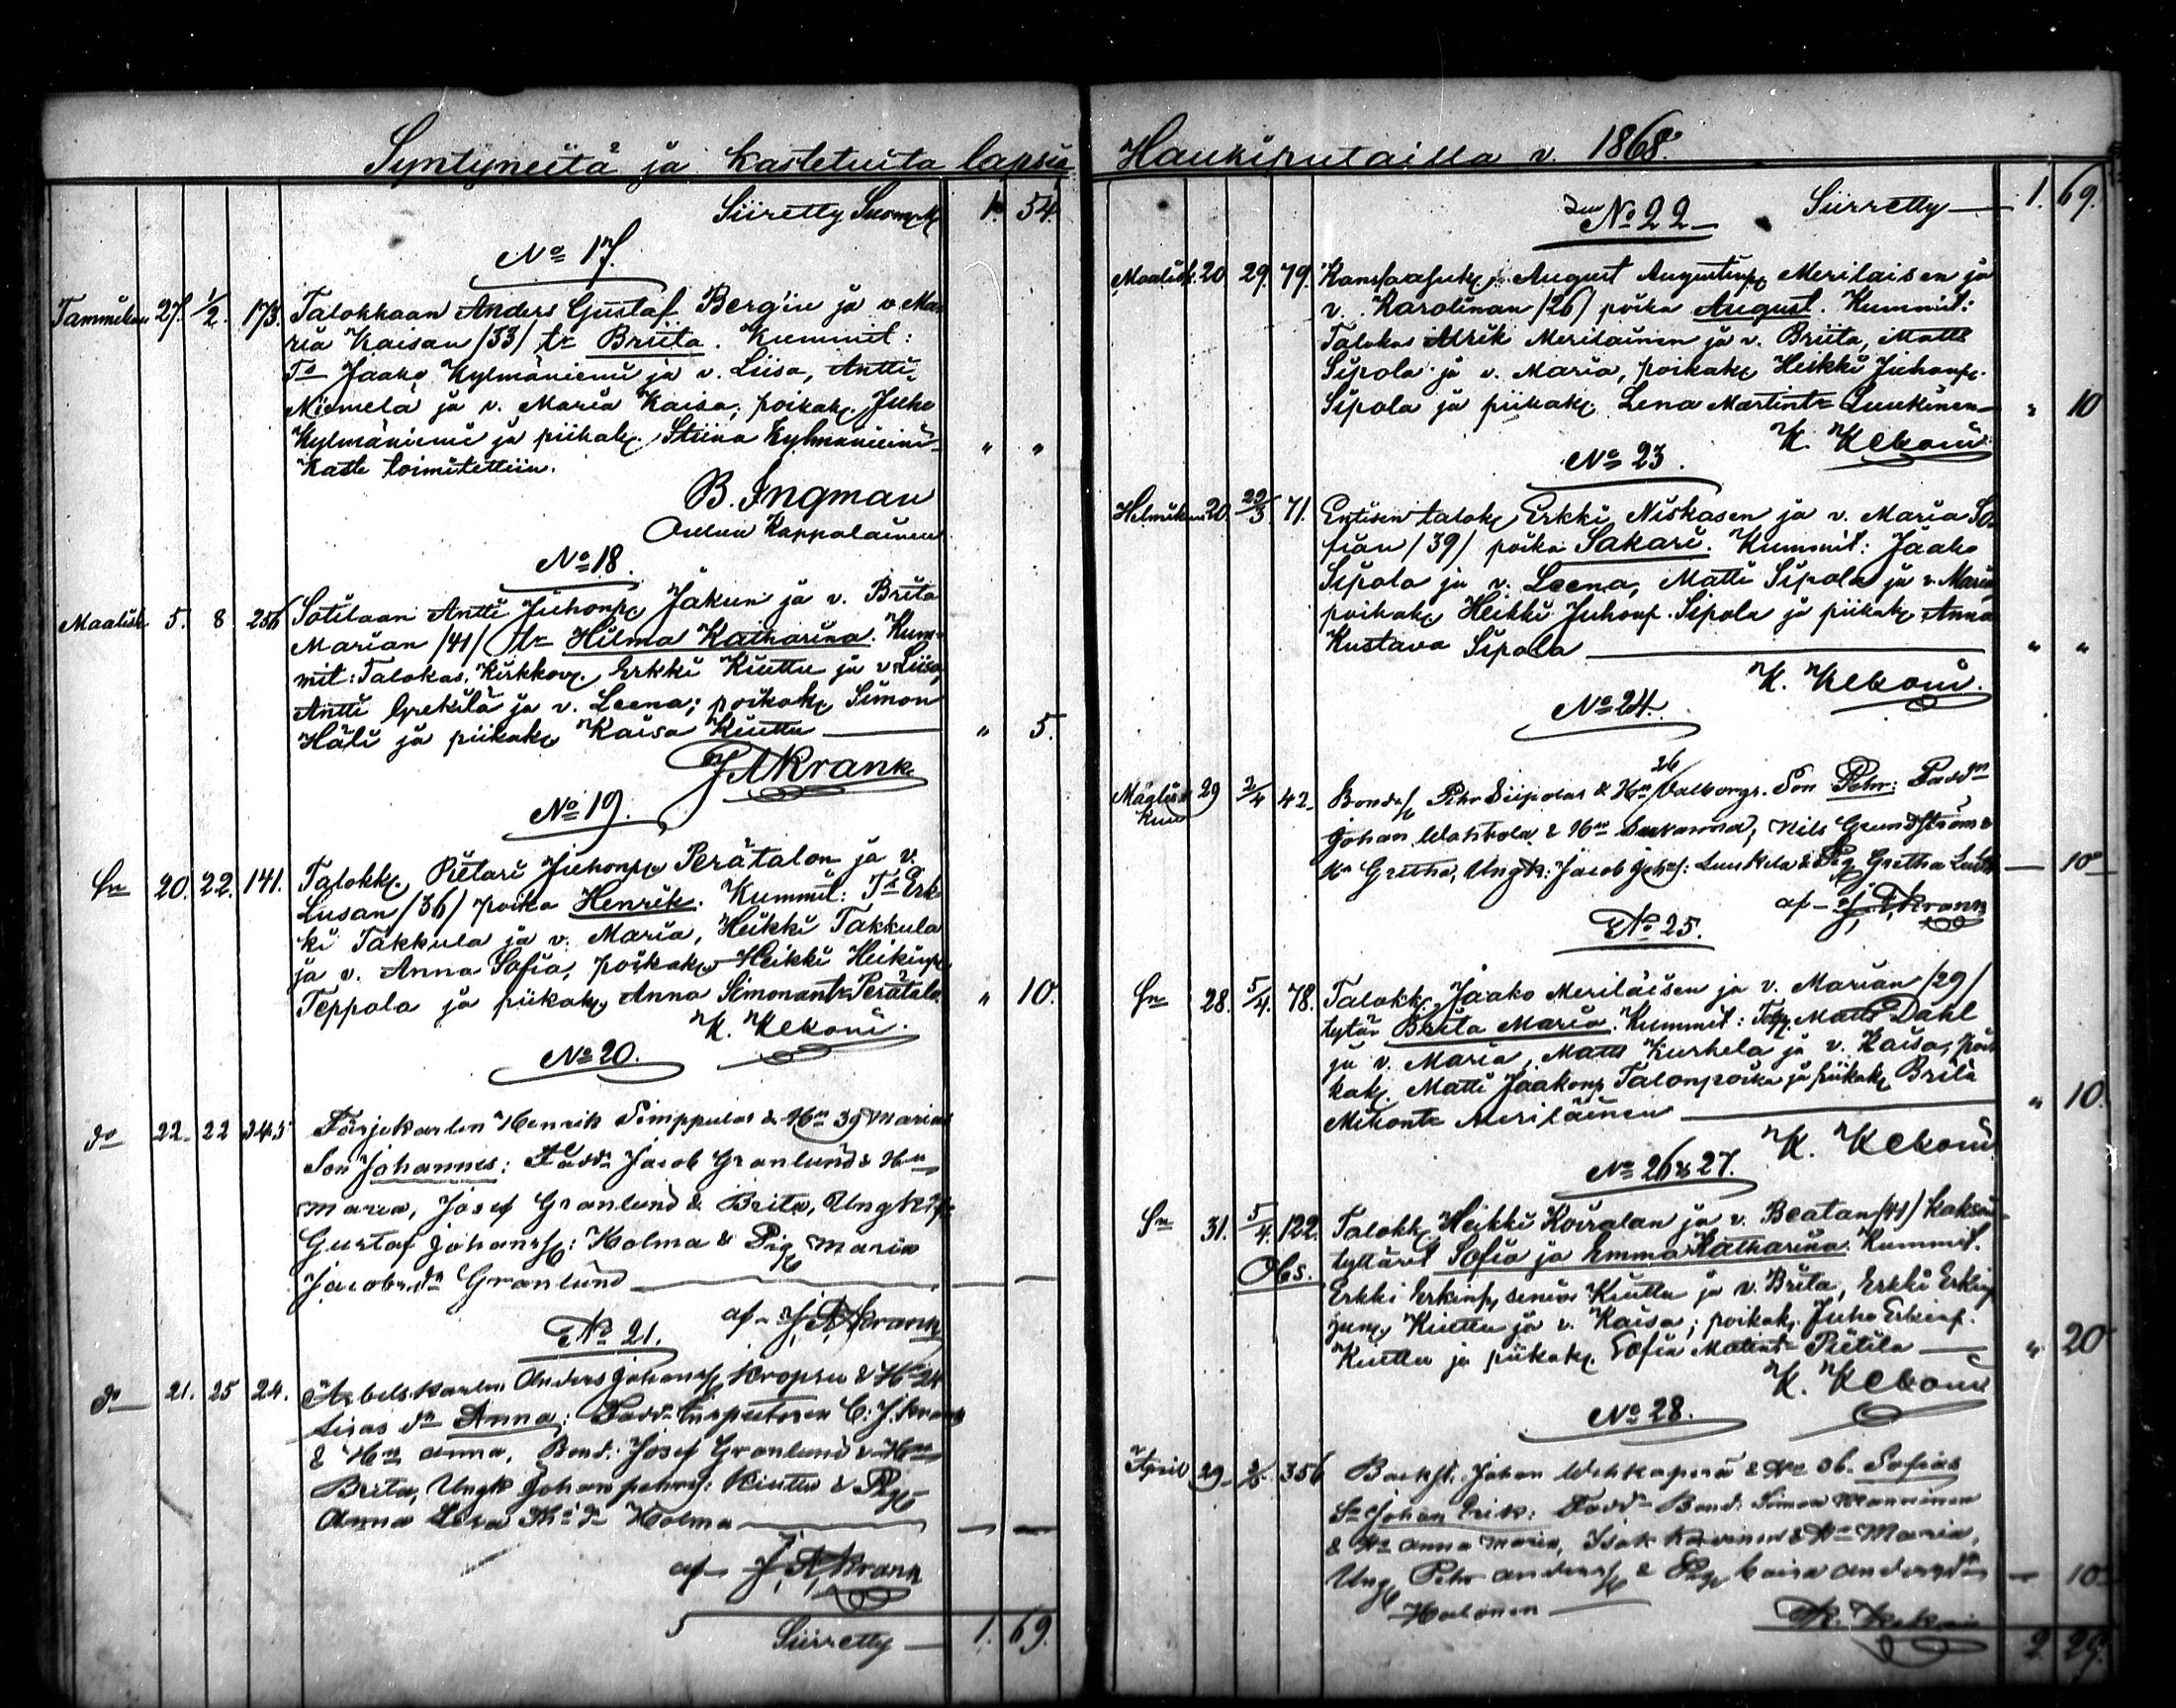 Syntyneitä ja kastetuita lapsia Haukiputailla v. 1868.
Siiretty 1. 54.
No 17.
Tammikuu 27. 1/2. 173. Talokkaan Anders Gustaf Berg'in ja v Ma
ria Kaisan /33/ tr Briita. Kummit:
Ts Jaako Kylmäniemi ja v. Liisa, Antti
Niemelä ja v. Maria Kaisa; poikak. Juho
Kylmäniemi ja piikak. Stiina Kylmäniemi " "
Kaste toimitettiin.
B. Ingman
Oulun Kappalainen
No 18.
Maalisk 5. 8. 256 Sotilaan Antti Juhonp Jakun ja v. Brita
Marian /41/ tr Hilma Katharina. Kum-
mit: Talokas, Kirkkov. Erkki Kiuttu ja v Liisa,
Antti Grekilä ja v. Leena; poikak Simon
Häli ja piikak Kaisa Kiuttu " 5.
J A Krank
No 19.
Sn 20. 22. 141. Talokk. Pietari Juhonp. Perätalon ja v.
Lusan /36/ poika Henrik. Kummit: Ts Erk-
ki Takkula ja v. Maria, Heikki Takkula
ja v. Anna Sofia, poikak Heikki Heikinp
Teppola ja piikak. Anna Simonantr Perätalo. " 10.
K. Kekoni.
No 20.
do 22. 22 345 Färjekarlen Henrik Simppulas & Hn 39 Marias
Son Johannes: Fadd: Jacob Granlund & Hn
Maria, Josef Granlund & Brita, Ungk
Gustaf Johanss: Holma & Pig Maria
Jacobsdr Granlund — —
af J. A. Krank
No 21.
do 21. 25 24. Arbetskarlen Anders Johanss Kropsu & Hn 24
Lisas dr Anna; Fadd Inspectoren C: J. Krank
& Hn Anna, Bond: Josef Granlund & Hn
Brita, Ungk Johan Johans: Kiuttu & Pig
Anna Lisa dr Holma — —
af J. A. Krank
Siirretty 1. 69.
No 22 Siirretty 1. 69.
Maalisk. 20 29. 79. August Augustinp Meriläisen ja
v. Karolinan /26/ poika August. Kummit:
Talokas Meriläinen ja v. Briita, Matts
Sipola ja v. Maria, poikak Heikki Juhonp.
Sipola ja piikak. Lena Martintr Luukinen " 10
K. Kekoni
No 23.
Helmikuu 20. 29/3. 71. Entisen talok Erkki Niskasen ja v. Maria So
fian /39/ poika Sakari. Kummit: Jaako
Sipola ja v. Leena, Matti Sipola ja v Maria,
poikak Heikki Juhonp. Sipola ja piikak Anna
Kustava Sipola " "
K. Kekoni.
No 24.
29 2/4 42 Bondes Pehr Siipolas & Hn 26 Valborgs. Son Pehr: Fadd
Johan & Hn Susanna, Nils Grundström &
Hn Gretha, Ungk: Jacob Johs: Luukela & Pig Gretha — 10
af J. A. Krank
No 25.
Sn 28. 5/4. 78. Talokk. Jaako Meriläisen ja v. Marian /29/
tytär Brita Maria. Kummit: Matts Dahl
ja v. Maria, Matts Kurkela ja v. Kaisa, poi
kak. Matti Jaakonp Talonpoika ja piikak Brita
Mikontr Meriläinen " 10.
K. Kekoni
No 26 & 27.
Sn 31. 5/4. 122. Talokk. Heikki Koiralan ja v. Beatan /41/ kaksois
Obs. tyttäret Sofia ja Emma Katharina. Kummit.
Erkki Erkinp senior Kiuttu ja v. Brita, Erkki Erkinp
jun. Kiuttu ja v. Kaisa; poikak. Juho Erkinp.
Kiuttu ja piikak. Sofia Matint Pietila " 20
K. Kekoni
No 28.
April 29 356 Johan & Hn 36. Sofias
Sn Johan Erik: Fadd Bond: Simon Manninen
& Hn Anna Maria, Isak & Hn Maria,
Ung Pehr Anderss & Pig Caisa Andersdr — 10
Halonen
K. Kekoni
2 29.